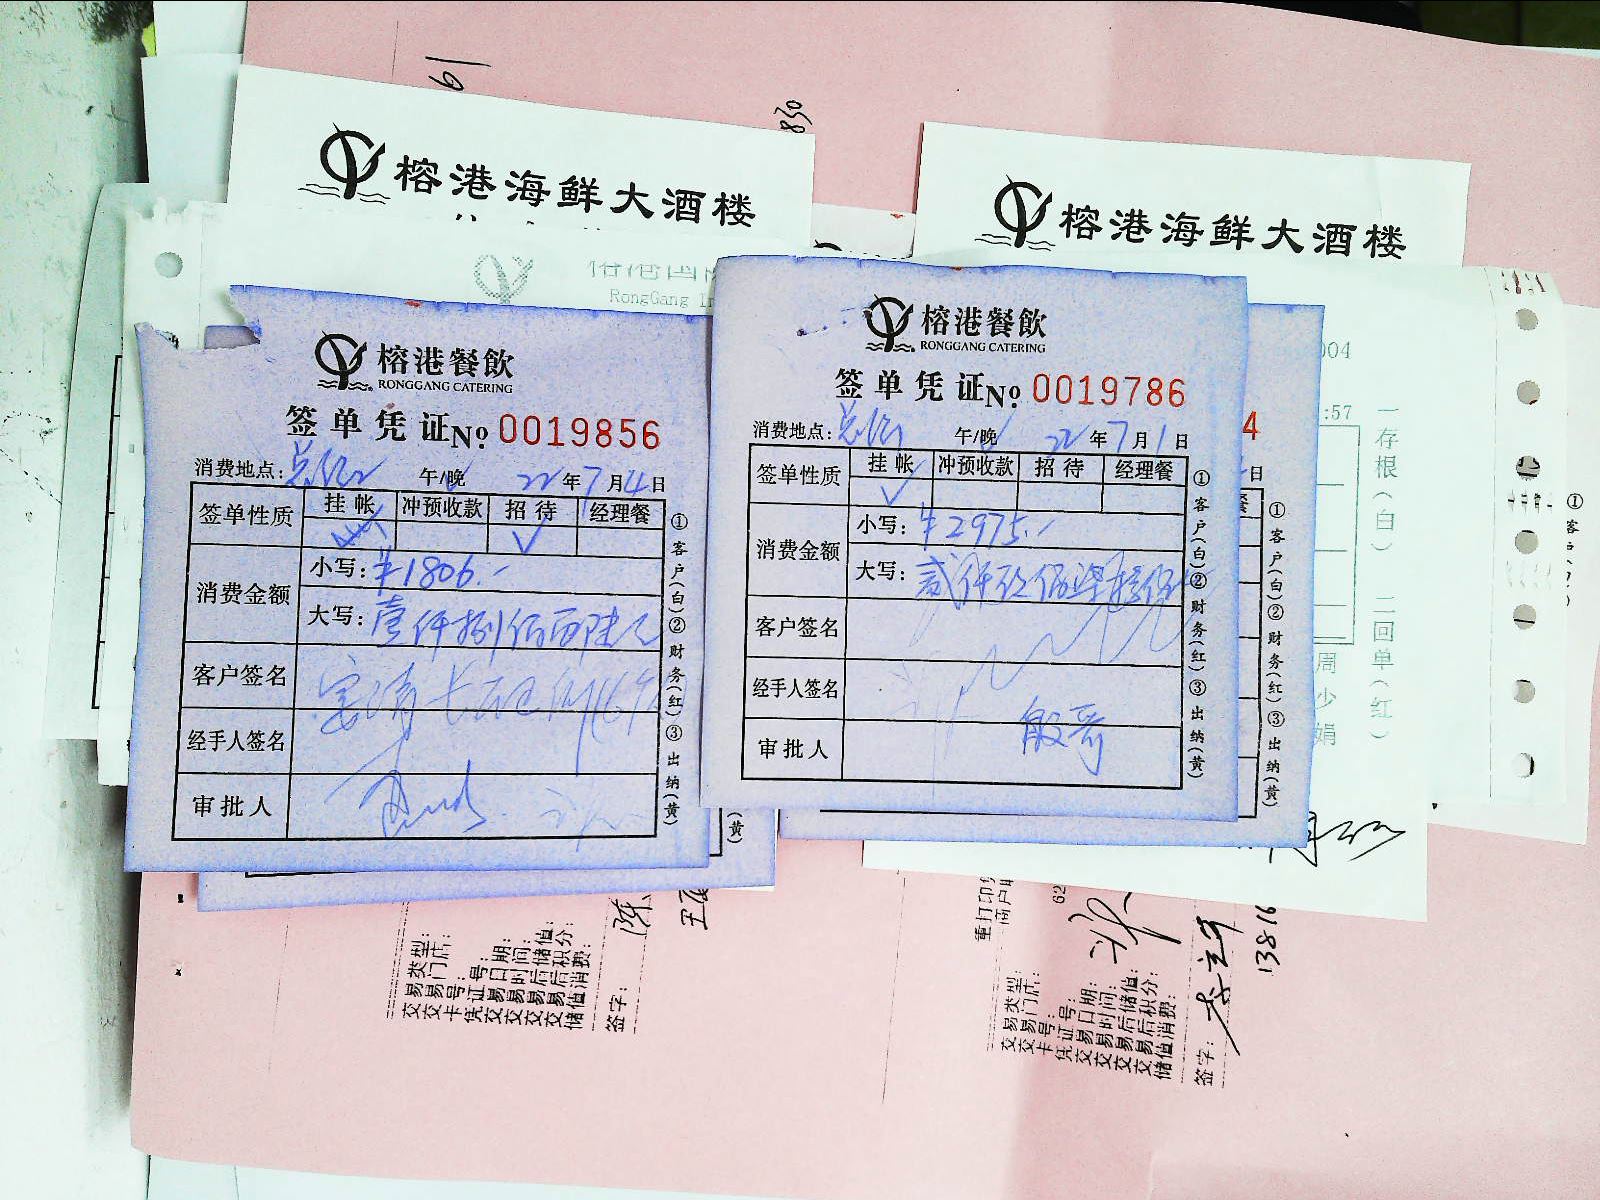 61
830
榕港海鲜大酒楼
榕港海鲜大酒楼
RongGang
榕港餐飲
RONGGANG CATERING
签单凭证No 0019856
消费地点: 午/晚 22年7月4日
签单性质 挂帐 冲预收款 招待 经理餐
消费金额 小写: ¥1806.-
大写: 壹仟捌佰零陆元
客户签名
经手人签名
审批人
①客户(白)②财务(红)③出纳(黄)
(黄)
榕港餐飲
RONGGANG CATERING
签单凭证No 0019786
消费地点: 午/晚 22年7月1日
签单性质 挂帐 冲预收款 招待 经理餐
消费金额 小写: ¥2975.-
大写: 贰仟玖佰柒拾伍
客户签名
经手人签名
审批人
①客户(白)②财务(红)③出纳(黄)
4
日
餐
①客户(白)②财务(红)③出纳(黄)
004
:57
一存根(白) 二回单(红)
周少娟
①客户
交易类型:
交易门店:
卡号:
凭证号:
交易日期:
交易时间:
交易后储值:
交易后积分:
储值消费:
签字:
重打印
商户
62
交易类型:
交易门店:
卡号:
凭证号:
交易日期:
交易时间:
交易后储值:
交易后积分:
储值消费:
签字:
13816